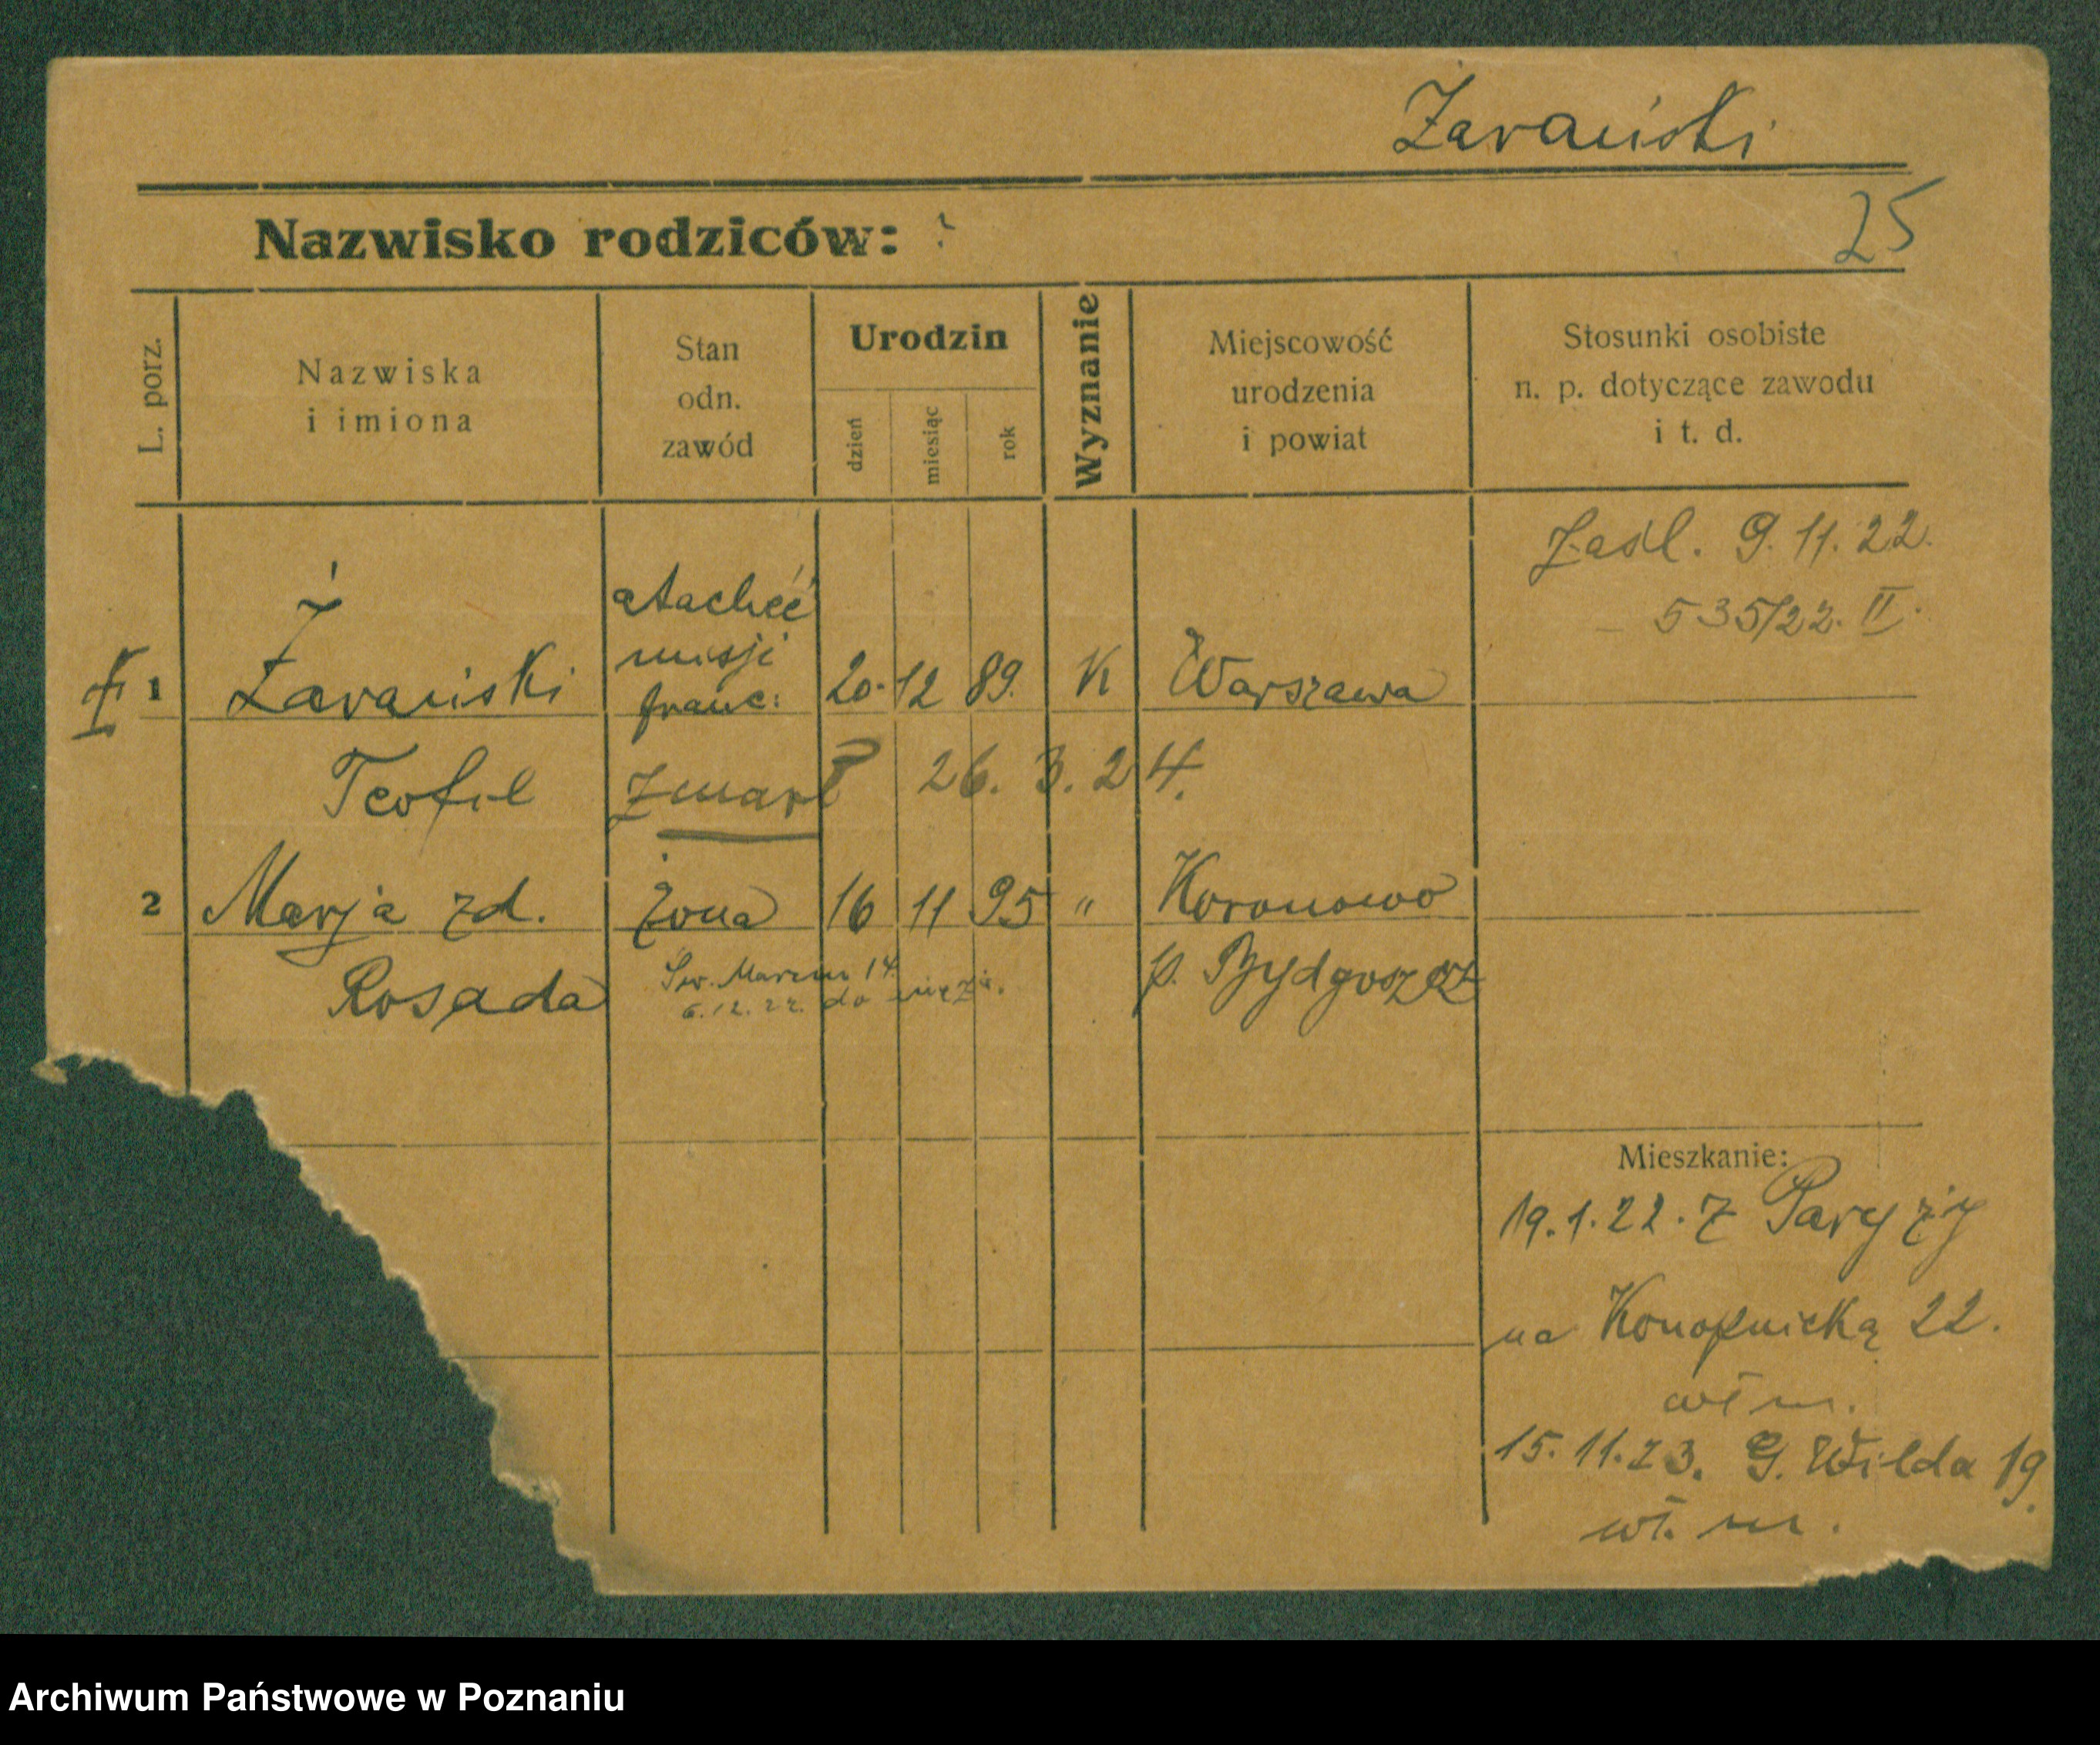 Żarański
Nazwisko rodziców: ?
25
L. porz.
Nazwiska
i imiona
Stan
odn.
zawód
Urodzin
dzień
miesiąc
rok
Wyznanie
Miejscowość
urodzenia
i powiat
Stosunki osobiste
n. p. dotyczące zawodu
i t. d.
Zaśl. 9.11.22.
535/22. II.
atacheé
misji
franc:
1 Żarański 20. 12 89. K Warszawa
Teofil zmarł 26. 3. 24.
2 Marja zd. żona 16 11 95 " Koronowo
Rosada p. Bydgoszcz
Św. Marcin 14.
6.12.22. do męża.
Mieszkanie:
19.1.22. z Paryży
na Konopnicką 22.
wł m.
15.11.23. G. Wilda 19.
wł. m.
Archiwum Państwowe w Poznaniu